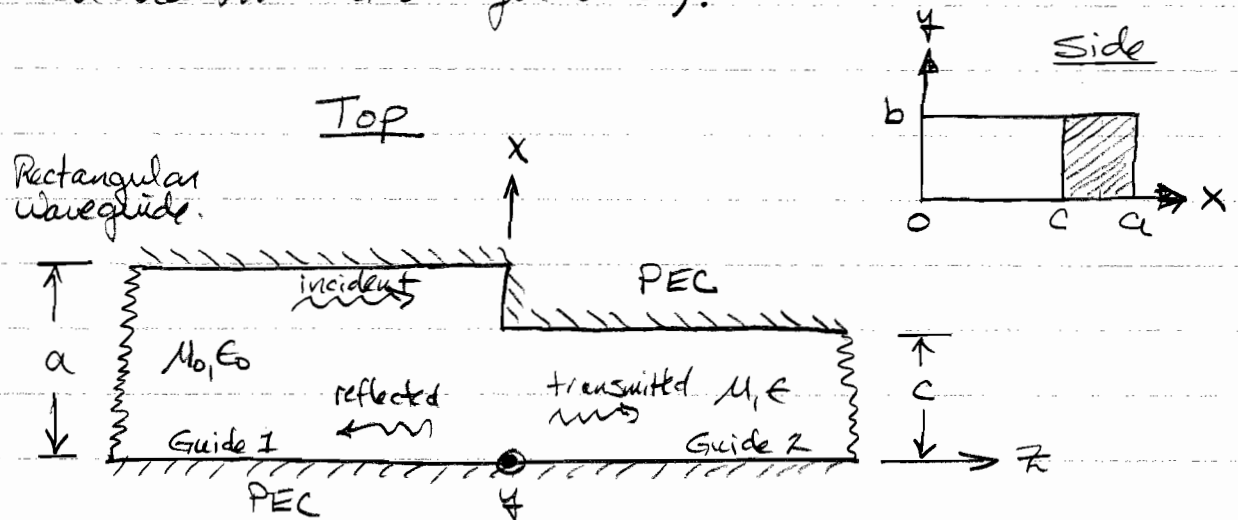 y
Side
Top
b
x
Rectangular
waveguide.
0 c a x
incident
PEC
a
μ₀,ε₀
reflected
transmitted μ,ε
c
Guide 1
Guide 2
z
PEC
y